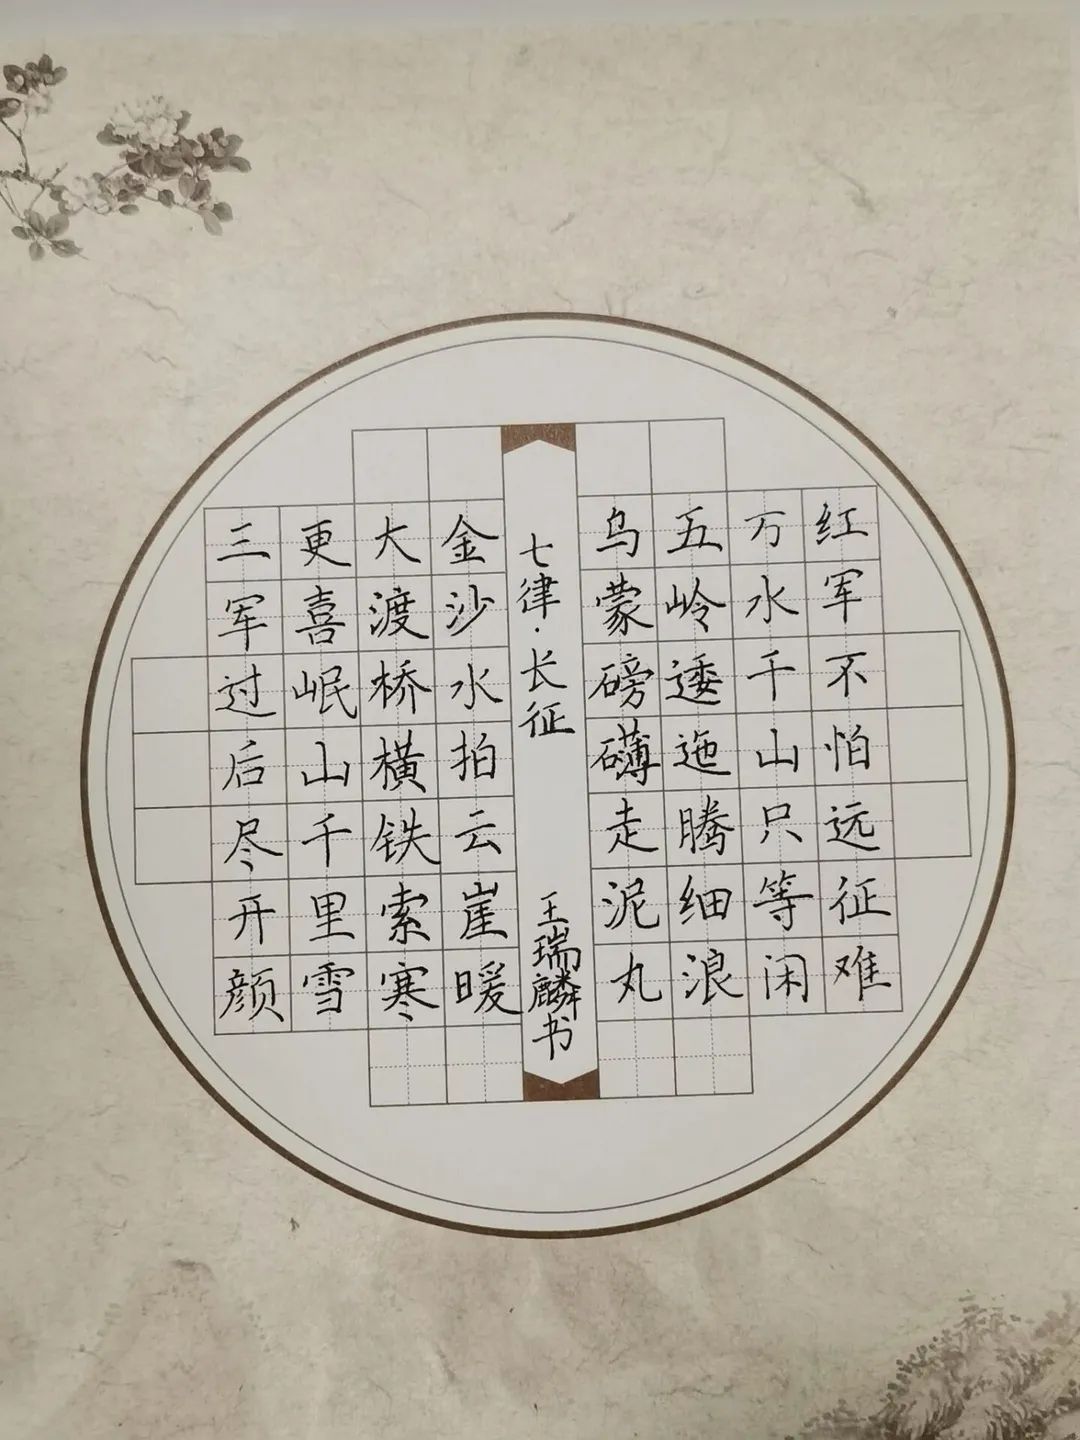 红军不怕远征难
万水千山只等闲
五岭逶迤腾细浪
乌蒙磅礴走泥丸
七律·长征
王瑞麟书
金沙水拍云崖暖
大渡桥横铁索寒
更喜岷山千里雪
三军过后尽开颜